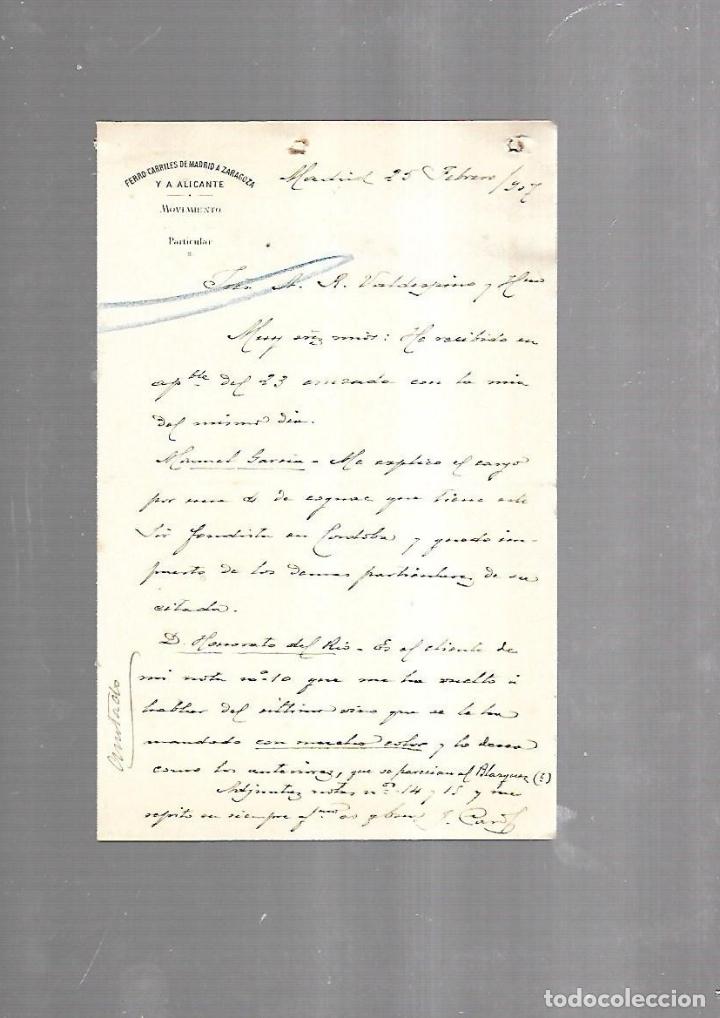 FERRO-CARRILES DE MADRID A ZARAGOZA
Y A ALICANTE
MOVIMIENTO
Particular
Madrid 25 Febrero/907
Sres. A. R. Valdespino y Hno
Muy Sres mios: He recibido su
apble del 23 cruzada con la mia
del mismo dia.
Manuel Garcia - Me explico el cargo
por una de cognac que tiene este
Sor fondista en Cordoba y quedo im-
puesto de los demas particulares de su
citada.
D. Honorato del Rio - Es el cliente de
mi nota nº 10 que me ha vuelto á
hablar del último vino que se le ha
mandado con mucho color y lo desea
como los anteriores, que se parecian al Blazquez
Adjuntas notas nos 14 y 15 y me
repito su siempre afmo
Anotado
todocoleccion.net